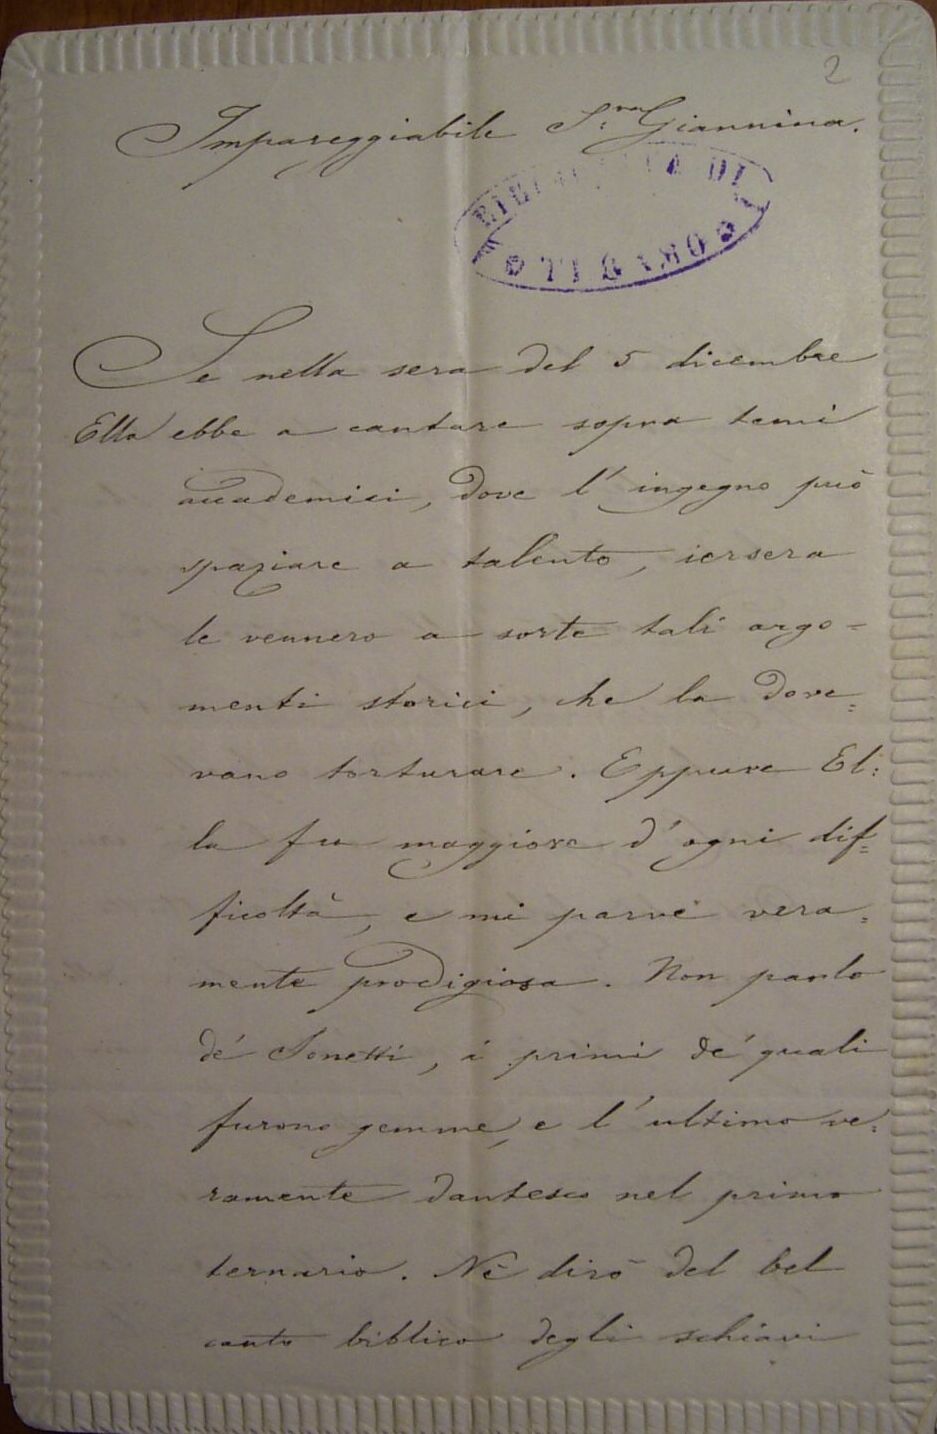 2
Impareggiabile S.ra Giannina.
BIBLIOTECA DI
TERAMO
Se nella sera del 5 dicembre
Ella ebbe a cantare sopra temi
accademici, dove l'ingegno può
spaziare a talento, iersera
le vennero a sorte tali argo=
menti storici, che la dove=
vano torturare. Eppure El=
la fu maggiore d'ogni dif=
ficoltà, e mi parve vera=
mente prodigiosa. Non parlo
de' Sonetti, i primi de' quali
furono gemme, e l'ultimo ve=
ramente dantesco nel primo
ternario. Nè dirò del bel
canto biblico degli schiavi